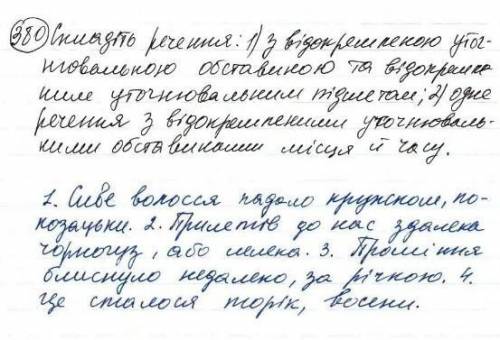 380 Складіть речення: 1) з відокремленою уточ-
нювальною обставиною та відокремле
ним уточнювальним підметом; 2) одне
речення з відокремленими уточнюваль-
ними обставинами місця й часу.
1. Сиве волосся падало кружком, по-
козацьки. 2. Прилетів до нас здалека
чорногуз, або лелека. 3. Проміння
блиснуло недалеко, за річкою. 4.
Це сталося торік, восени.